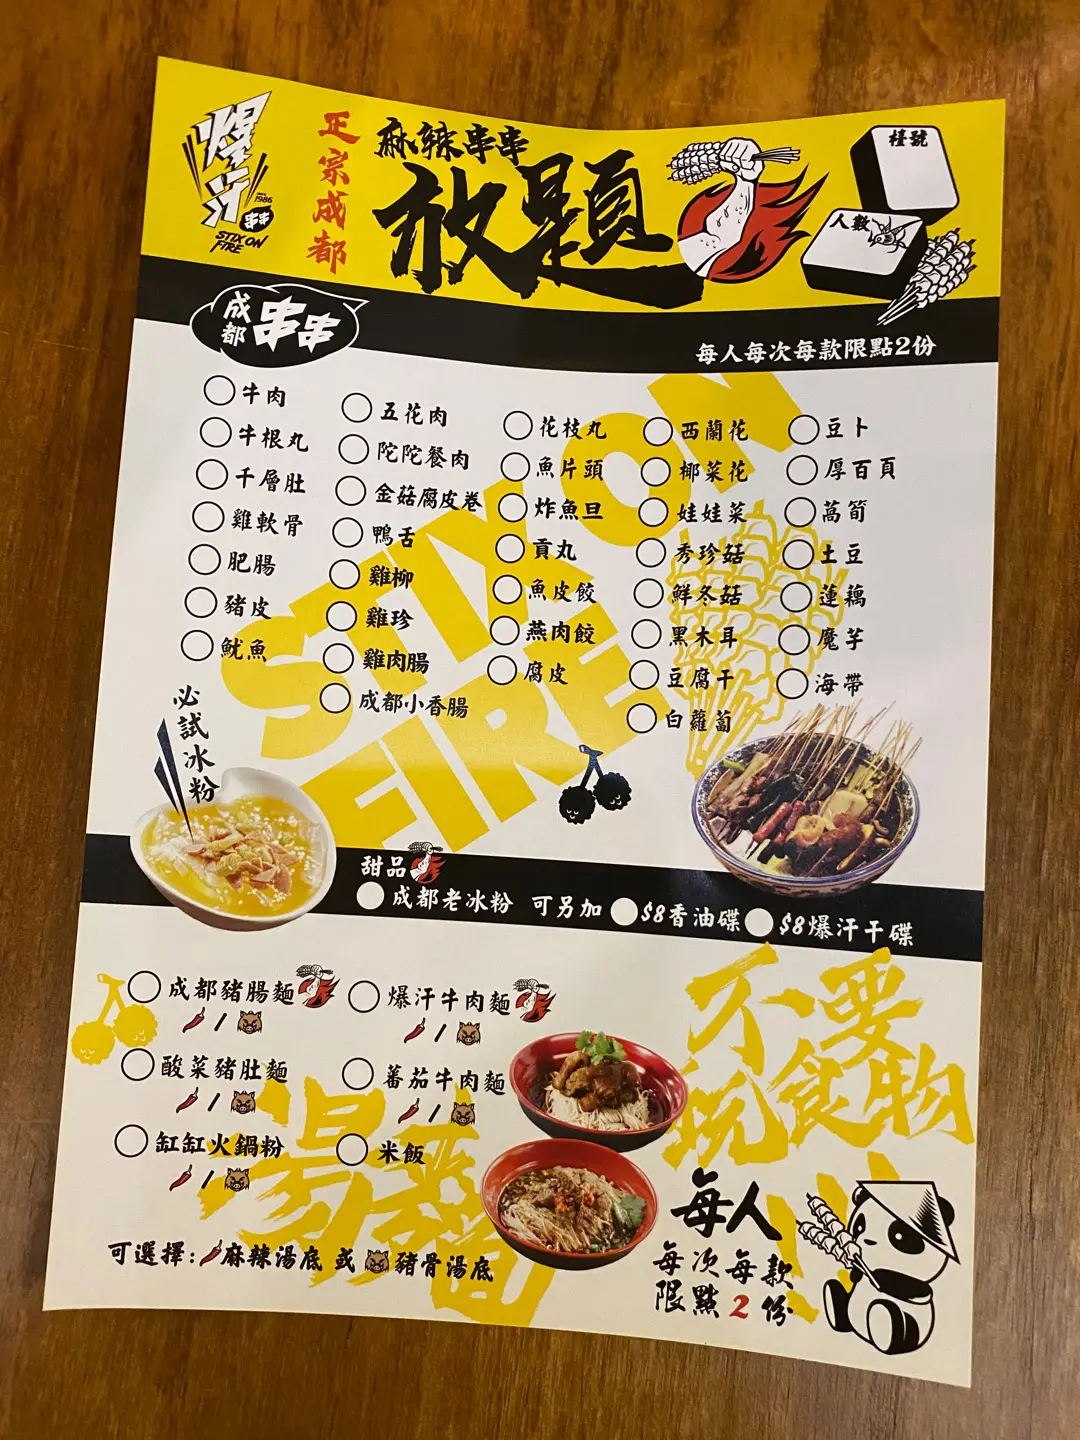 爆汗
SINCE 1986
串串
STIX ON
FIRE
正宗成都
麻辣串串
放題
檯號
人數
成都 串串
每人每次每款限點2份
STIX ON
FIRE
牛肉
牛根丸
千層肚
雞軟骨
肥腸
豬皮
魷魚
五花肉
陀陀餐肉
金菇腐皮卷
鴨舌
雞柳
雞珍
雞肉腸
成都小香腸
花枝丸
魚片頭
炸魚旦
貢丸
魚皮餃
燕肉餃
腐皮
西蘭花
椰菜花
娃娃菜
秀珍菇
鮮冬菇
黑木耳
豆腐干
白蘿蔔
豆卜
厚百頁
萵筍
土豆
蓮藕
魔芋
海帶
必試冰粉
甜品
成都老冰粉 可另加 $8香油碟 $8爆汗干碟
成都豬腸麵
/
爆汗牛肉麵
/
酸菜豬肚麵
/
蕃茄牛肉麵
/
缸缸火鍋粉
/
米飯
可選擇: 麻辣湯底 或 豬骨湯底
不要
玩食物
每人
每次每款
限點2份